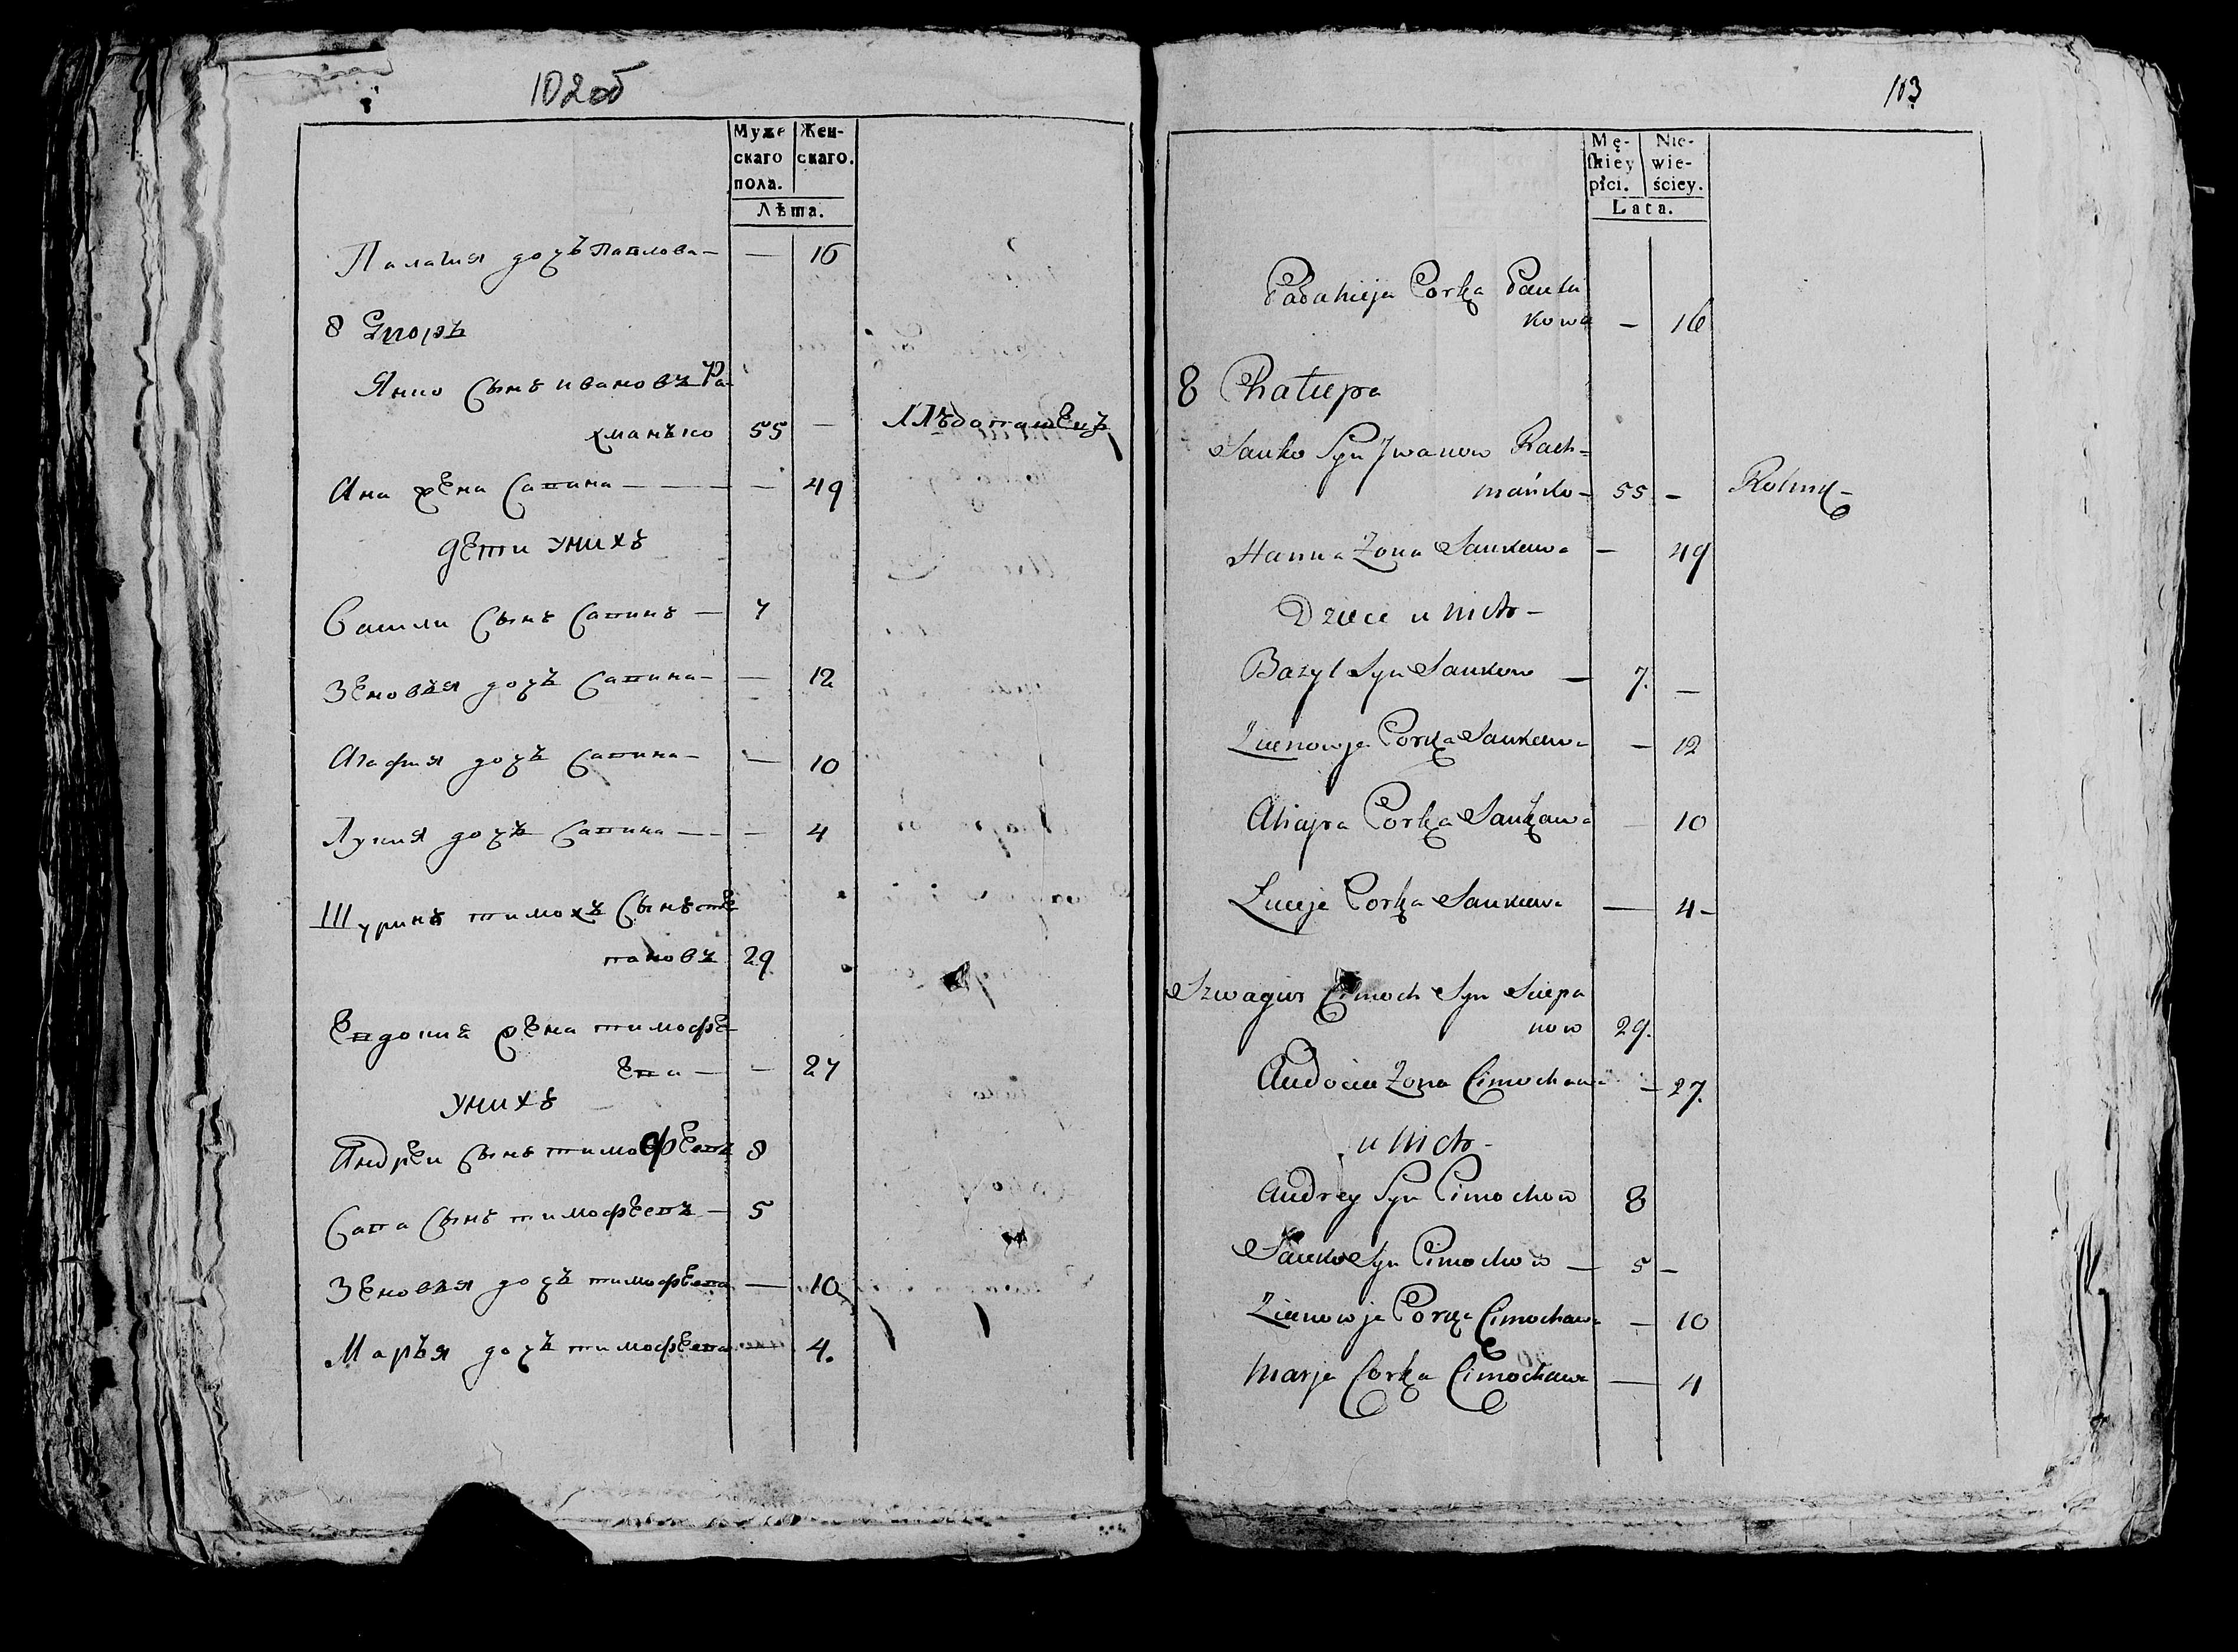 102об
Муже
скаго
пола.
Жен-
скаго.
Лѣта.
Палагия дочъ Павлова — — 16
8 Дворъ
сынъ ивановъ Ра-
хманъко 55 —
Ана жена Савина — — 49
дети унихъ
Васили сынъ Савинъ — 7
Зеновъя дочъ Савина — — 12
Агафия дочъ Савина — — 10
Лукия дочъ Савина — — 4
Шуринъ тимохъ сынъ сте
пановъ 29
Евдокия жена тимофе-
ева — — 27
унихъ
Андреи сынъ тимофеевъ 8
Сава сынъ тимофеевъ — 5
Зеновъя дочъ тимофеева — 10
Маръя дочъ тимофеева 4.
103
Mę-
skiey
płci.
Nie-
wie-
ściey.
Lata.
Corka Pauln
kowa — 16
8 Chałupa
Sauko Syn Jwanow Rach-
mańko — 55 — Rolnik
Hanna Zona Saukowa — 49
Dzieci u nich —
Bazyl Syn Saukow — 7. —
Zienowja Corka Saukowa — 12
Ahapa Corka Saukowa — 10
Łucyja Corka Saukowa — 4 —
Szwagier Cimoch Syn Sciepa
now 29.
Audocia Zona Cimochowa — 27.
u nich —
Andrey Syn Cimochow 8
Sauko Syn Cimochow — 5 —
Zienowja Corka Cimochowa — 10
Marja Corka Cimochowa — 4